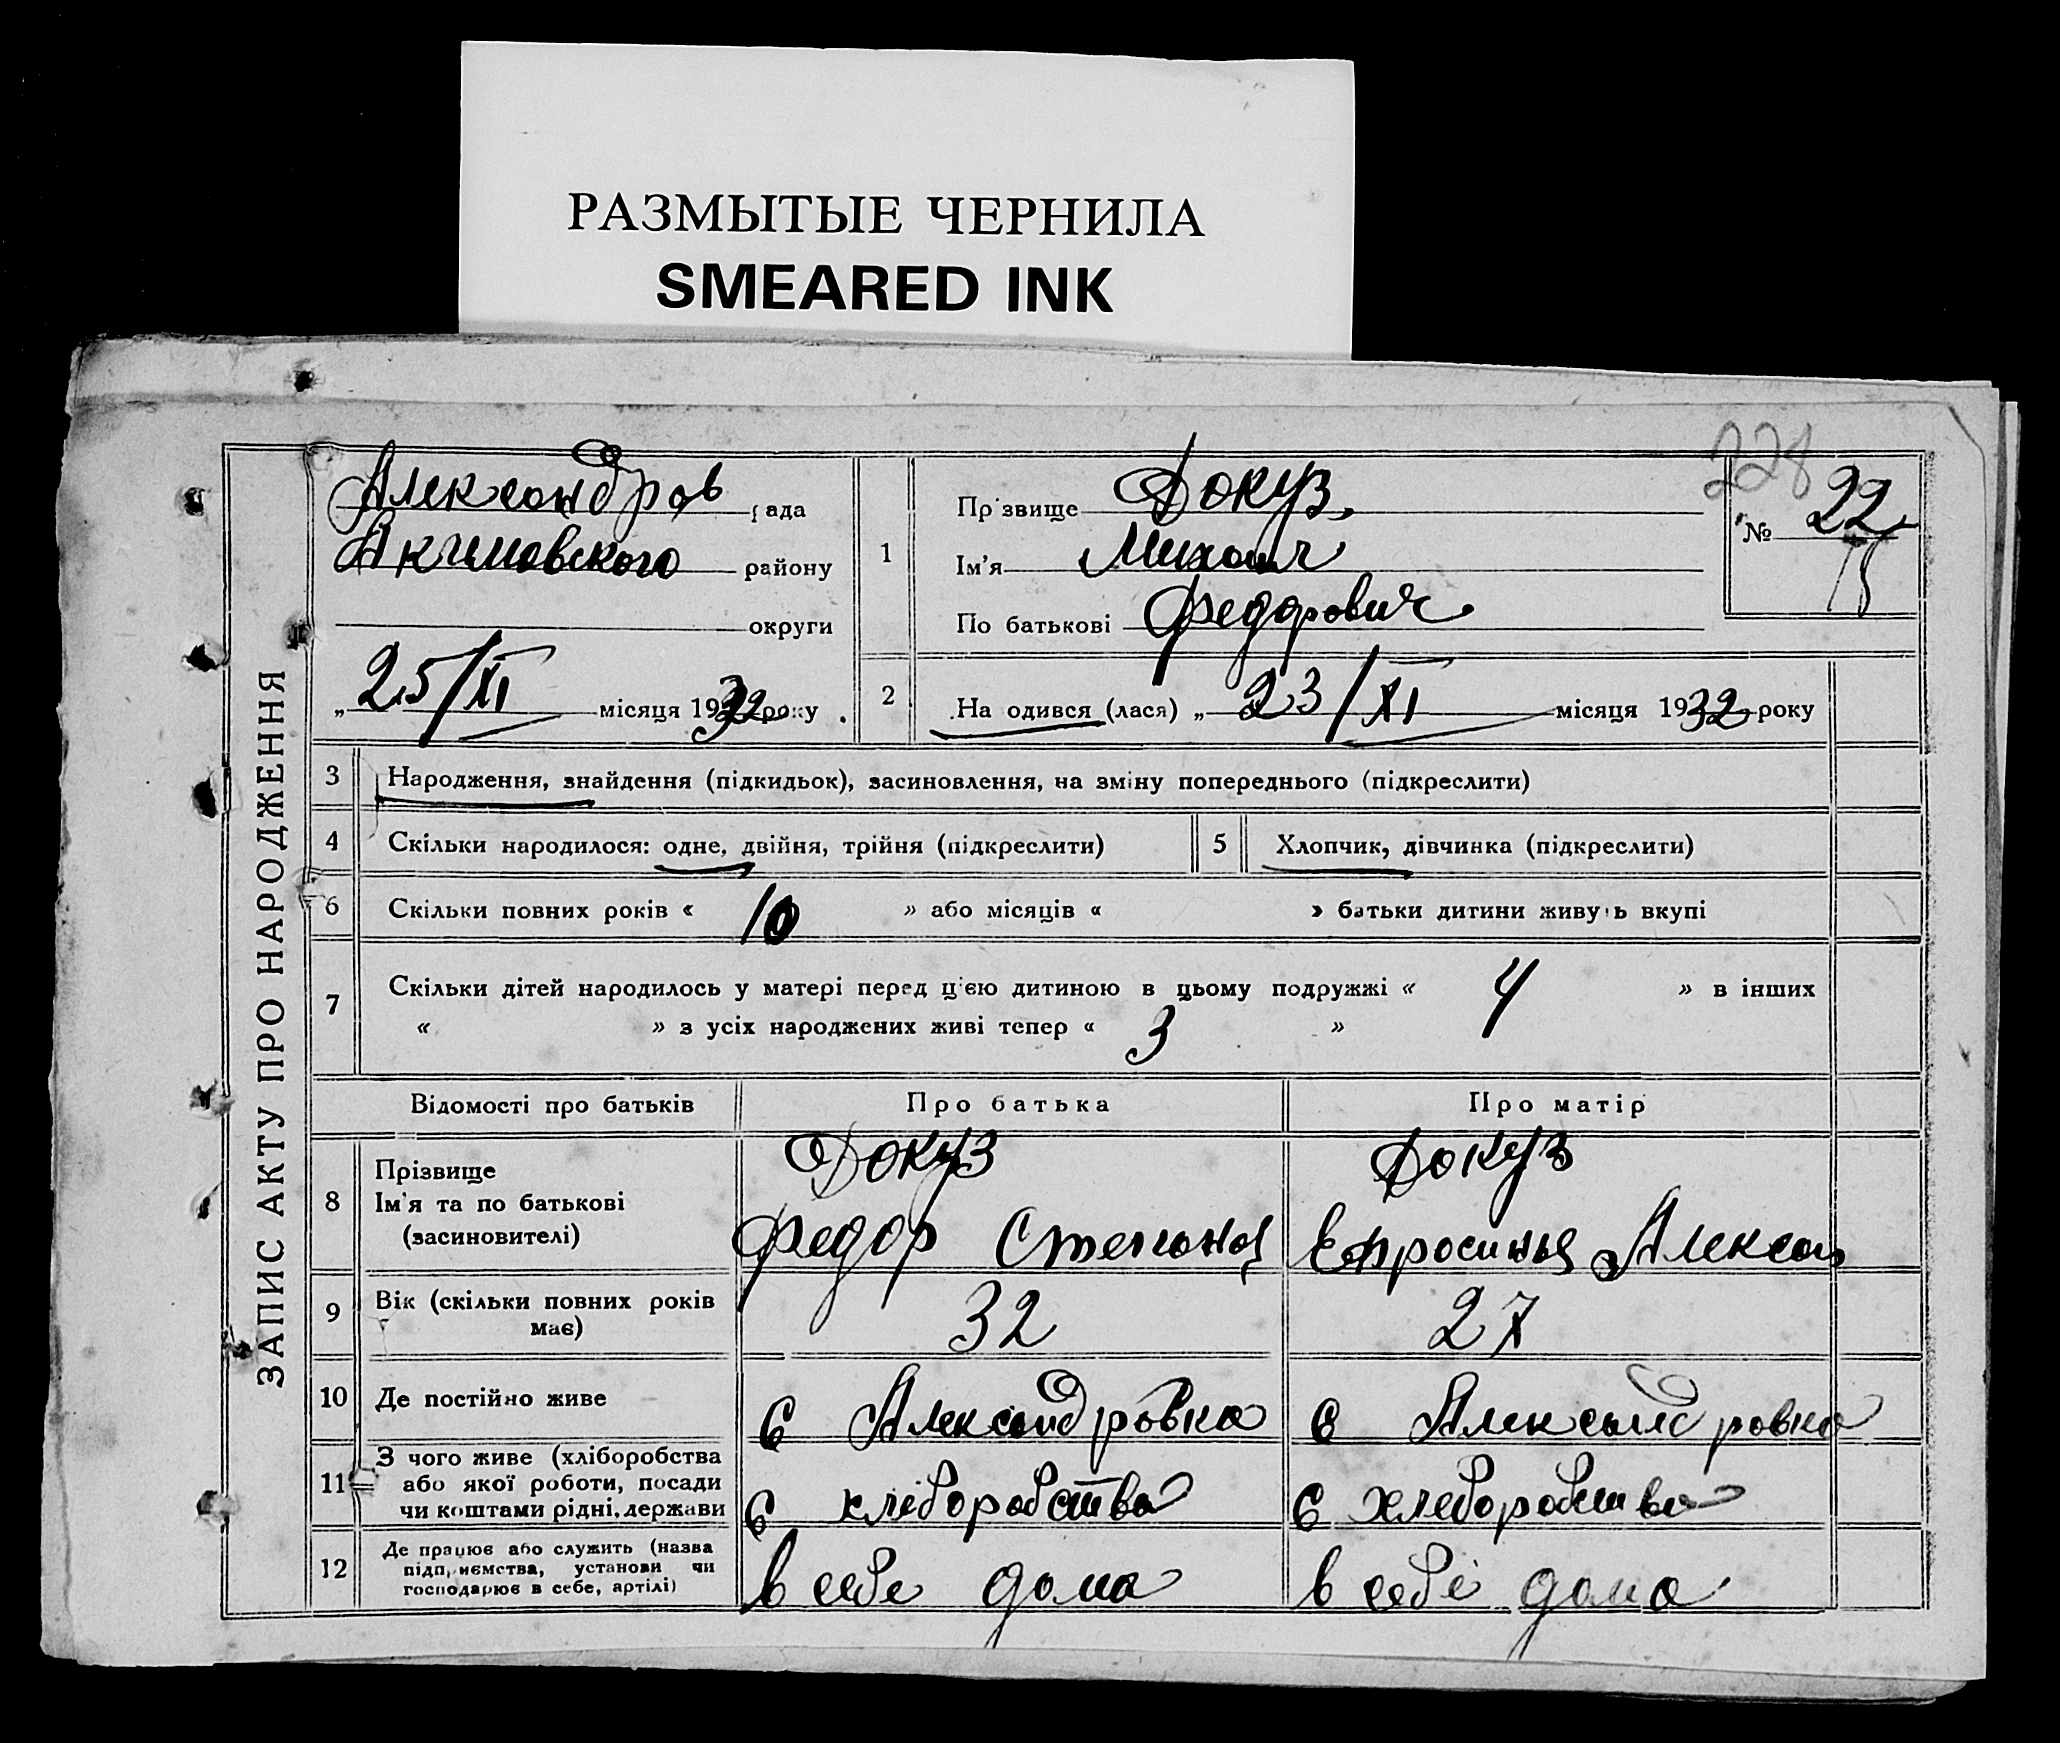 РАЗМЫТЫЕ ЧЕРНИЛА
SMEARED INK
228
ЗАПИС АКТУ ПРО НАРОДЖЕННЯ
Александров рада
Акимовского району
округи
„ 25/XI місяця 1932 року
1
Прізвище Докуз
Ім'я Михаил
По батькові Федорович
№ 22
2
На одився (лася) „ 23/XI місяця 1932 року
3 Народження, знайдення (підкидьок), засиновлення, на зміну попереднього (підкреслити)
4 Скільки народилося: одне, двійня, трійня (підкреслити)
5 Хлопчик, дівчинка (підкреслити)
6 Скільки повних років « 10 » або місяців « » батьки дитини живуть вкупі
7 Скільки дітей народилось у матері перед цією дитиною в цьому подружжі « 4 » в інших
« » з усіх народжених живі тепер « 3 »
Відомості про батьків Про батька Про матір
8 Прізвище
Ім'я та по батькові
(засиновителі)
Докуз
Федор Степанов
Докуз
Епросинья Алексан
9 Вік (скільки повних років
має)
32 27
10 Де постійно живе
с Александровка с Александровка
11 З чого живе (хліборобства
або якої роботи, посади
чи коштами рідні, держави
с хліборобства с хлеборобства
12 Де працює або служить (назва
підприємства, установи чи
господарює в себе, артілі)
в себе дома в себе дома